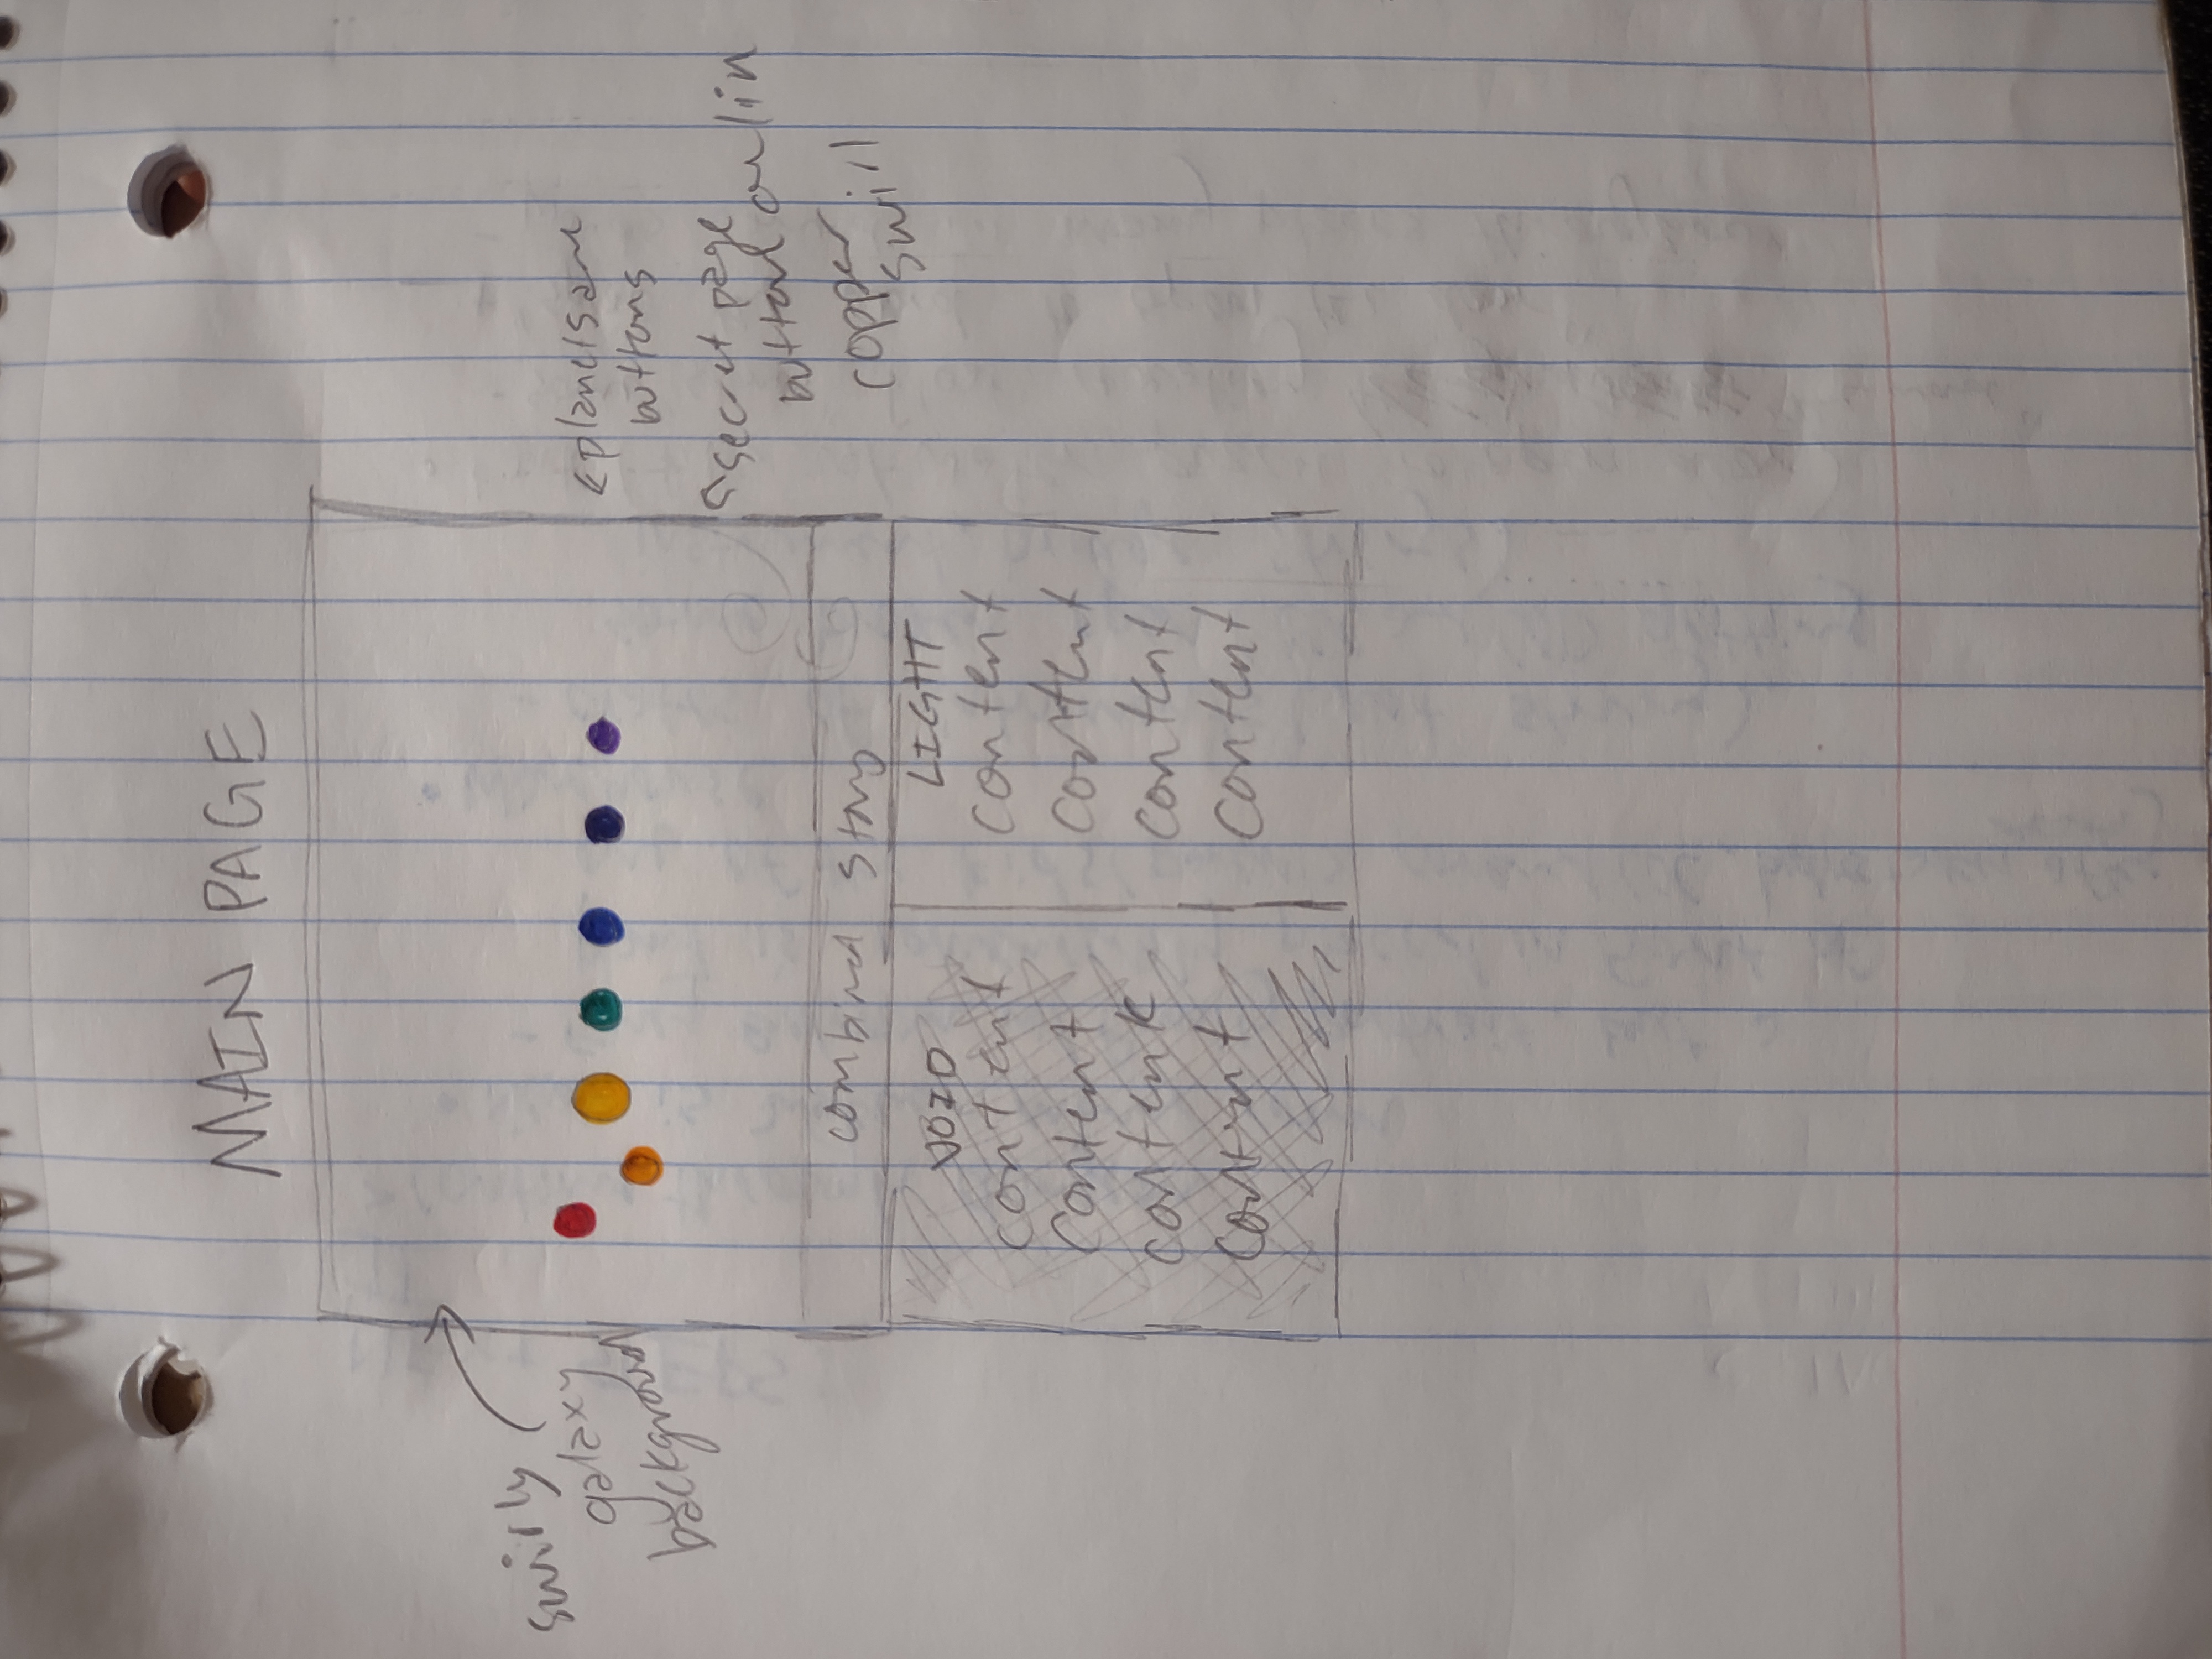 MAIN PAGE
swirly
galaxy
background
<planets are
buttons
<secret page
button on/in
copper
swirl
combined story
VOID
content
content
content
content
LIGHT
content
content
content
content